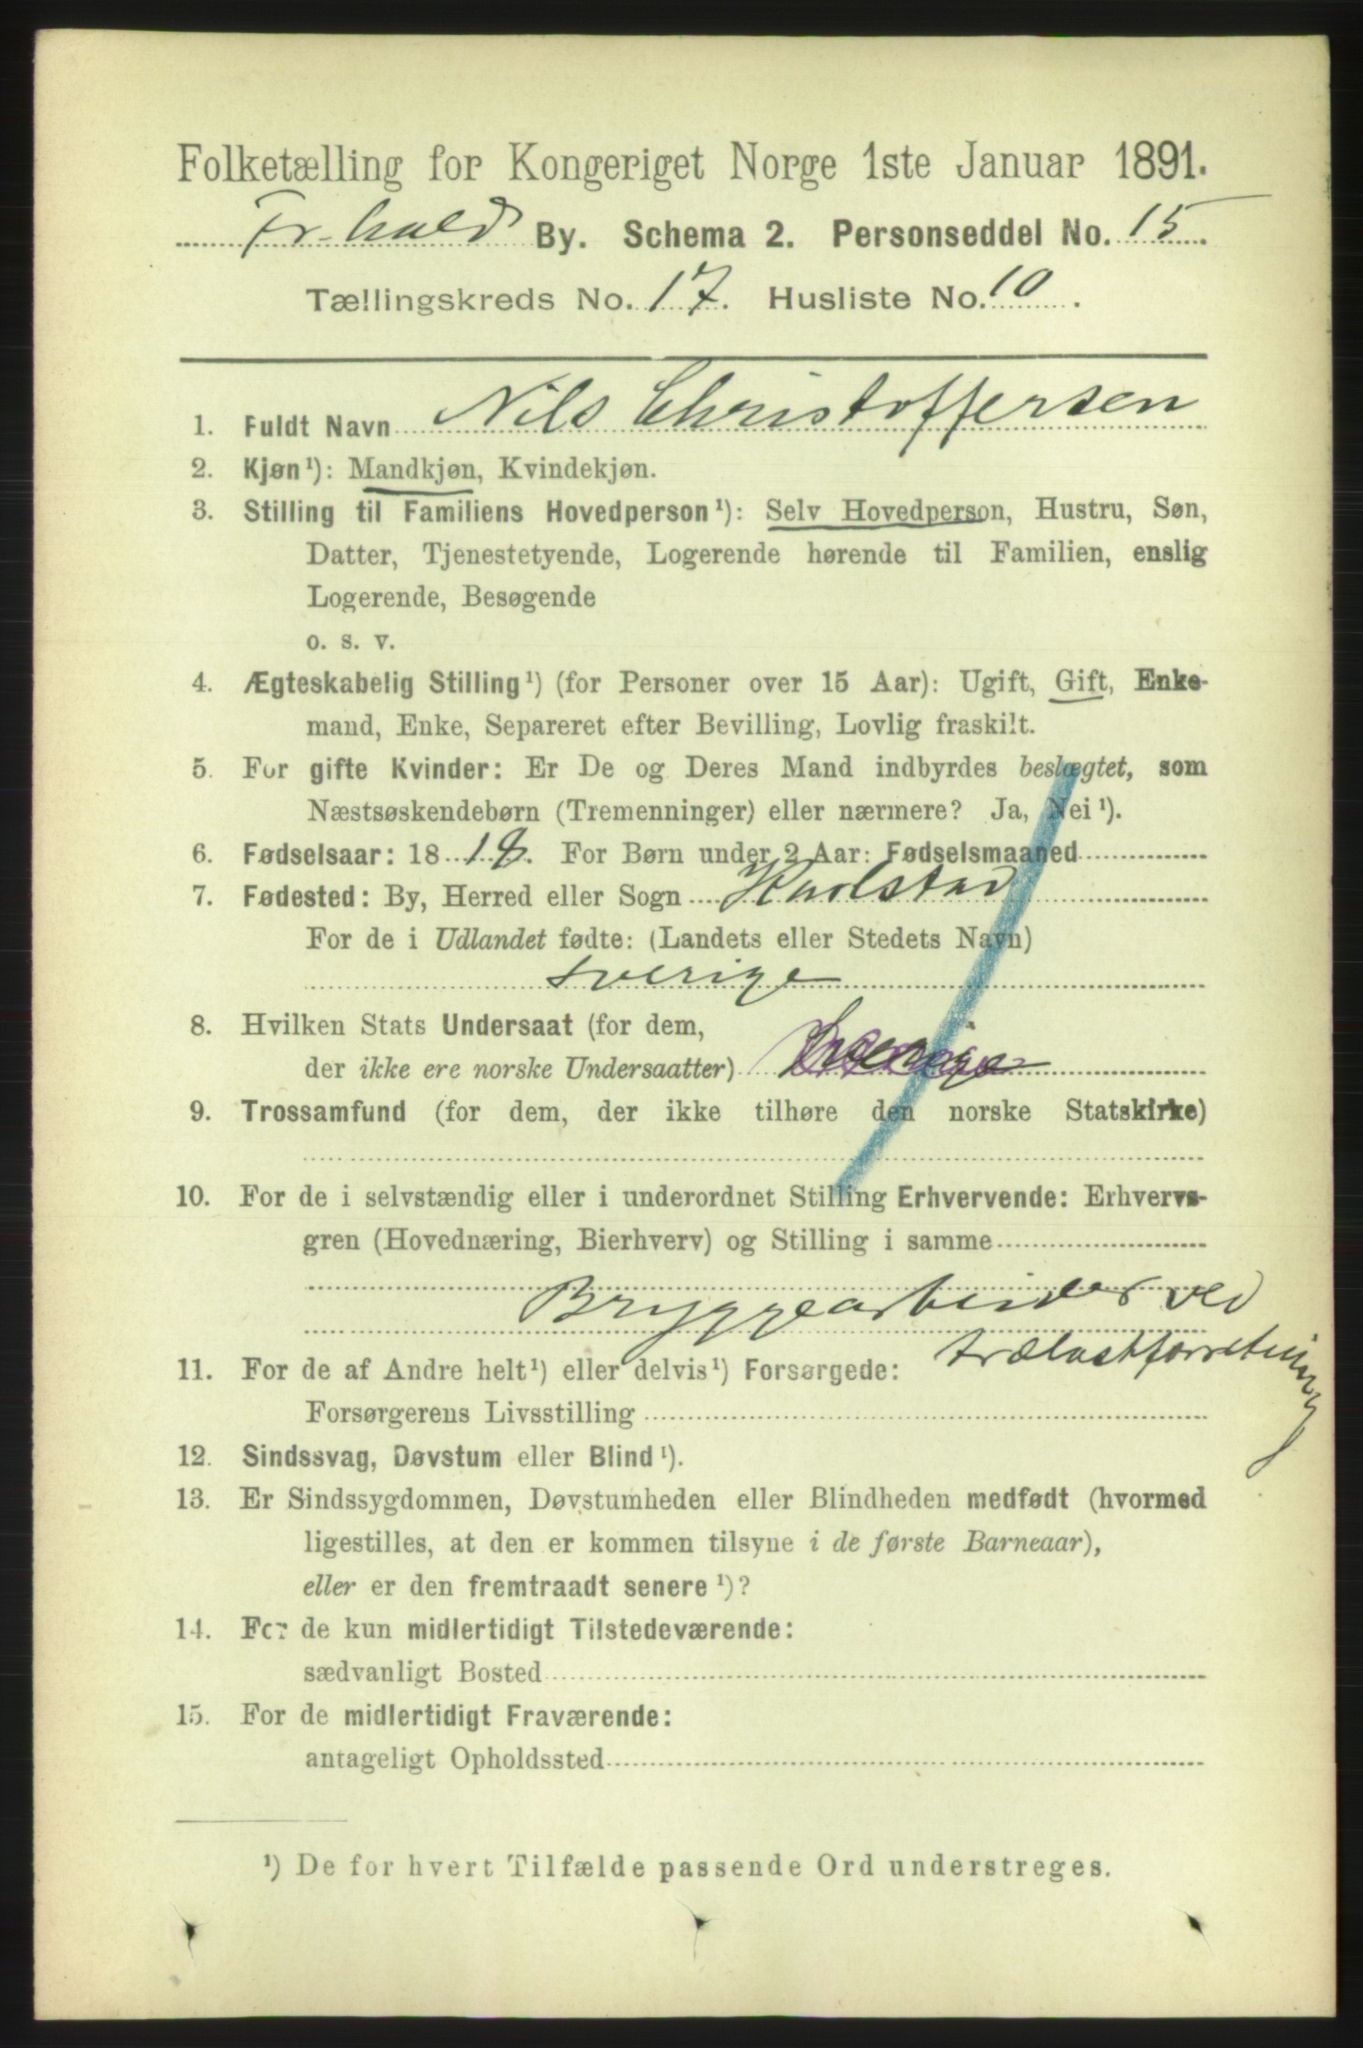 Folketælling for Kongeriget Norge 1ste Januar 1891.
Fr.hald By. Schema 2. Personseddel No. 15.
Tællingskreds No. 17. Husliste No. 10.
1. Fuldt Navn Nils Christoffersen
2. Kjøn¹): Mandkjøn, Kvindekjøn.
3. Stilling til Familiens Hovedperson¹): Selv Hovedperson, Hustru, Søn,
Datter, Tjenestetyende, Logerende hørende til Familien, enslig
Logerende, Besøgende
o. s. v.
4. Ægteskabelig Stilling¹) (for Personer over 15 Aar): Ugift, Gift, Enke-
mand, Enke, Separeret efter Bevilling, Lovlig fraskilt.
5. For gifte Kvinder: Er De og Deres Mand indbyrdes beslægtet, som
Næstsøskendebørn (Tremenninger) eller nærmere? Ja, Nei¹).
6. Fødselsaar: 18 18. For Børn under 2 Aar: Fødselsmaaned
7. Fødested: By, Herred eller Sogn Karlstad
For de i Udlandet fødte: (Landets eller Stedets Navn)
Sverige
8. Hvilken Stats Undersaat (for dem,
der ikke ere norske Undersaatter) Sverige
9. Trossamfund (for dem, der ikke tilhøre den norske Statskirke)
10. For de i selvstændig eller i underordnet Stilling Erhvervende: Erhvervs-
gren (Hovednæring, Bierhverv) og Stilling i samme
Bryggearbeider ved
trælastforretning
11. For de af Andre helt¹) eller delvis¹) Forsørgede:
Forsørgerens Livsstilling
12. Sindssvag, Døvstum eller Blind¹).
13. Er Sindssygdommen, Døvstumheden eller Blindheden medfødt (hvormed
ligestilles, at den er kommen tilsyne i de første Barneaar),
eller er den fremtraadt senere¹)?
14. For de kun midlertidigt Tilstedeværende:
sædvanligt Bosted
15. For de midlertidigt Fraværende:
antageligt Opholdssted
¹) De for hvert Tilfælde passende Ord understreges.